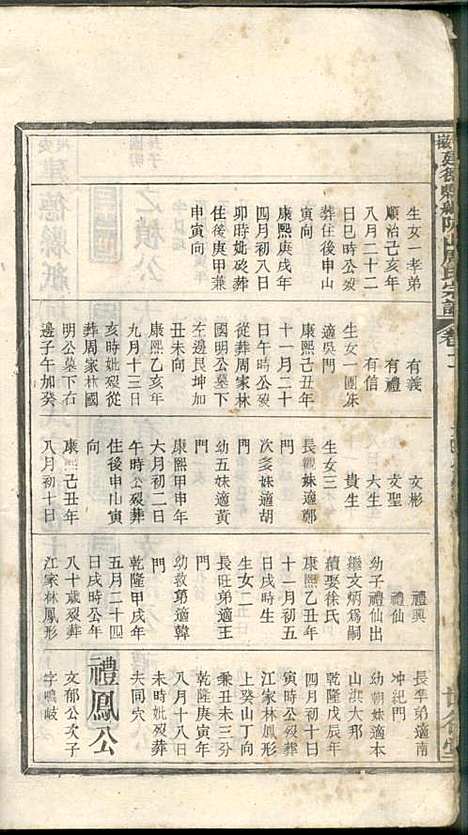 建德縣紙阬山周氏宗譜
生女一孝弟
順治己亥年
八月二十二
日巳時公歿
葬住後申山
寅向
康熙庚戌年
四月初八日
卯時妣歿葬
住後庚甲兼
申寅向
有義
有禮
有信
生女一團朱
適吳門
康熙己丑年
十一月二十
日午時公歿
從葬周家林
國明公墓下
左邊艮坤加
丑未向
康熙乙亥年
九月十三日
亥時妣歿從
葬周家林國
明公墓下右
邊子午加癸
文彬
文聖
大生
貴生
生女三
長觀妹適鄭
門
次多妹適胡
門
幼五妹適黃
門
康熙甲申年
六月初二日
午時公歿葬
住後申山寅
向
康熙己丑年
八月初十日
禮興
禮仙
幼子禮仙出
繼文炳爲嗣
續娶徐氏
康熙乙丑年
十一月初五
日戌時生
生女二
長旺弟適王
門
幼敎弟適韓
門
乾隆甲戌年
五月二十四
日戌時公年
八十歲歿葬
江家林鳳形
長準弟適南
冲紀門
幼朝妹適本
山洪大邦
乾隆戊辰年
四月初十日
寅時公歿葬
江家林鳳形
上癸山丁向
兼丑未三分
乾隆庚寅年
八月十八日
未時妣歿葬
夫同穴
禮鳳公
文郁公次子
字鳴岐